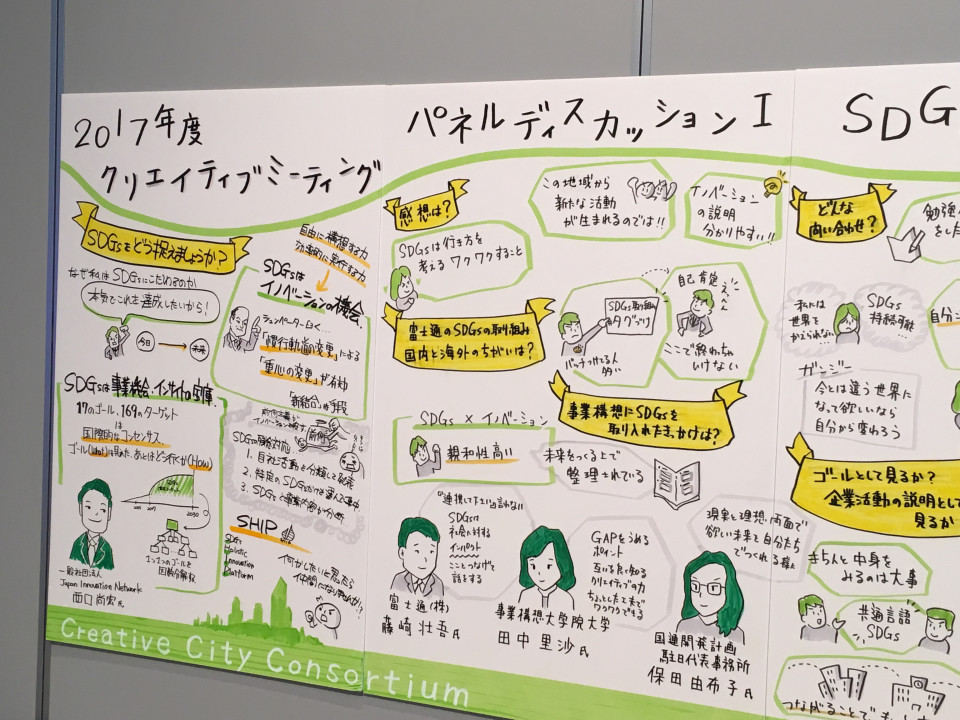 2017年度
クリエイティブミーティング
SDGsをどう捉えましょうか?
なぜ私はSDGsにこだわるのか
本気でこれを達成したいから!
今日
未来
自由に構想する力
効率的に実行する力
SDGsは
イノベーションの機会
シュンペーター曰く…
「慣行軌道の変更」による
「重心の変更」が有効
「新結合」は手段
SDGsは事業機会・インサイトの宝庫
17のゴール、169のターゲット
は
国際的なコンセンサス
ゴール(What)は見えた、あとはどう行くか(How)
2030
1つ1つのゴールを
因数分解
一般社団法人
Japan Innovation Network
西口尚宏氏
SDGsの残念対応
1. 自社活動を分類して発表
2. 特定のSDGsだけを選んで集中
3.
SHIP
SDGs
Holistic
Innovation
Platform
何かしたいと思ったら
仲間になりませんか?
パネルディスカッション I
感想は?
SDGsは行き方を
考える ワクワクすること
この地域から
新たな活動
が生まれるのでは!!
イノベーション
の説明
分かりやすい!!
富士通のSDGsの取り組み
国内と海外のちがいは?
SDGs取り組み
のタグづけ
バッチつけてる人
多い
自己肯定
ここで終わっちゃ
いけない
事業構想にSDGsを
取り入れたきっかけは?
SDGs × イノベーション
親和性高い
未来をつくる上で
整理されている
"連携して下さい"と言わない
SDGsは
社会に対する
インパクト
ここをつなげて
話をする
GAPをうめる
ポイント
互いを良く知る
クリエイティブの力
ちょっとした工夫で
ワクワクできる
現実と理想・両面で
欲しい未来を自分たち
でつくれる様に
富士通(株)
藤崎壮吾氏
事業構想大学院大学
田中里沙氏
国連開発計画
駐日代表事務所
保田由布子氏
SDG
どんな
問い合わせ?
勉強
をした
私には
世界を
かえられない
SDGs
持続可能
自分
ガンジー
今とは違う世界に
なって欲しいなら
自分から変わろう
ゴールとして見るか?
企業活動の説明として
見るか
きちんと中身を
みるのは大事
共通言語
SDGs
つながることで
Creative City Consortium